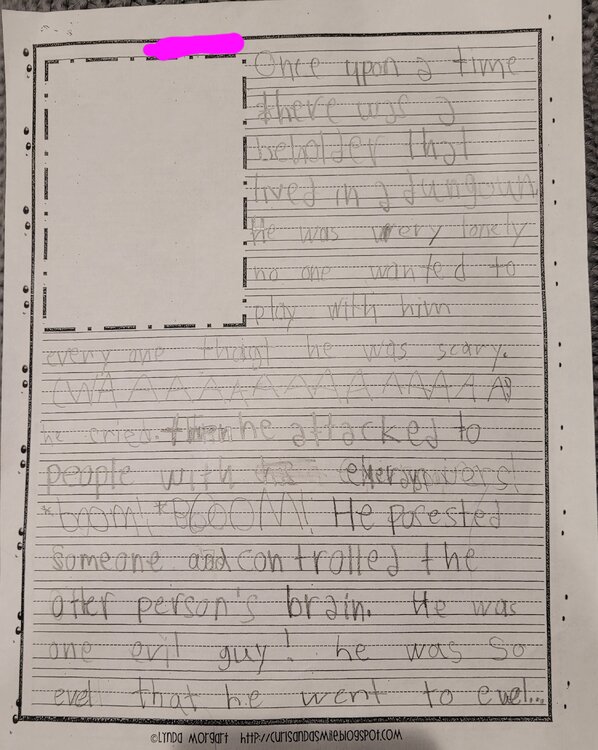 Once upon a time
there was a
beholder that
lived in a dungoun.
He was very lonely
no one wanted to
play with him
every one thougt he was scary.
(WAAAAAAAAAAAAAA)
he cried. then he attacked to
people with
*boom! *BOOM! He posested
someone and controlled the
otter person's brain. He was
one evil guy! he was so
evel that he went to evel...
©Lynda Morgart http://curlsandasmile.blogspot.com